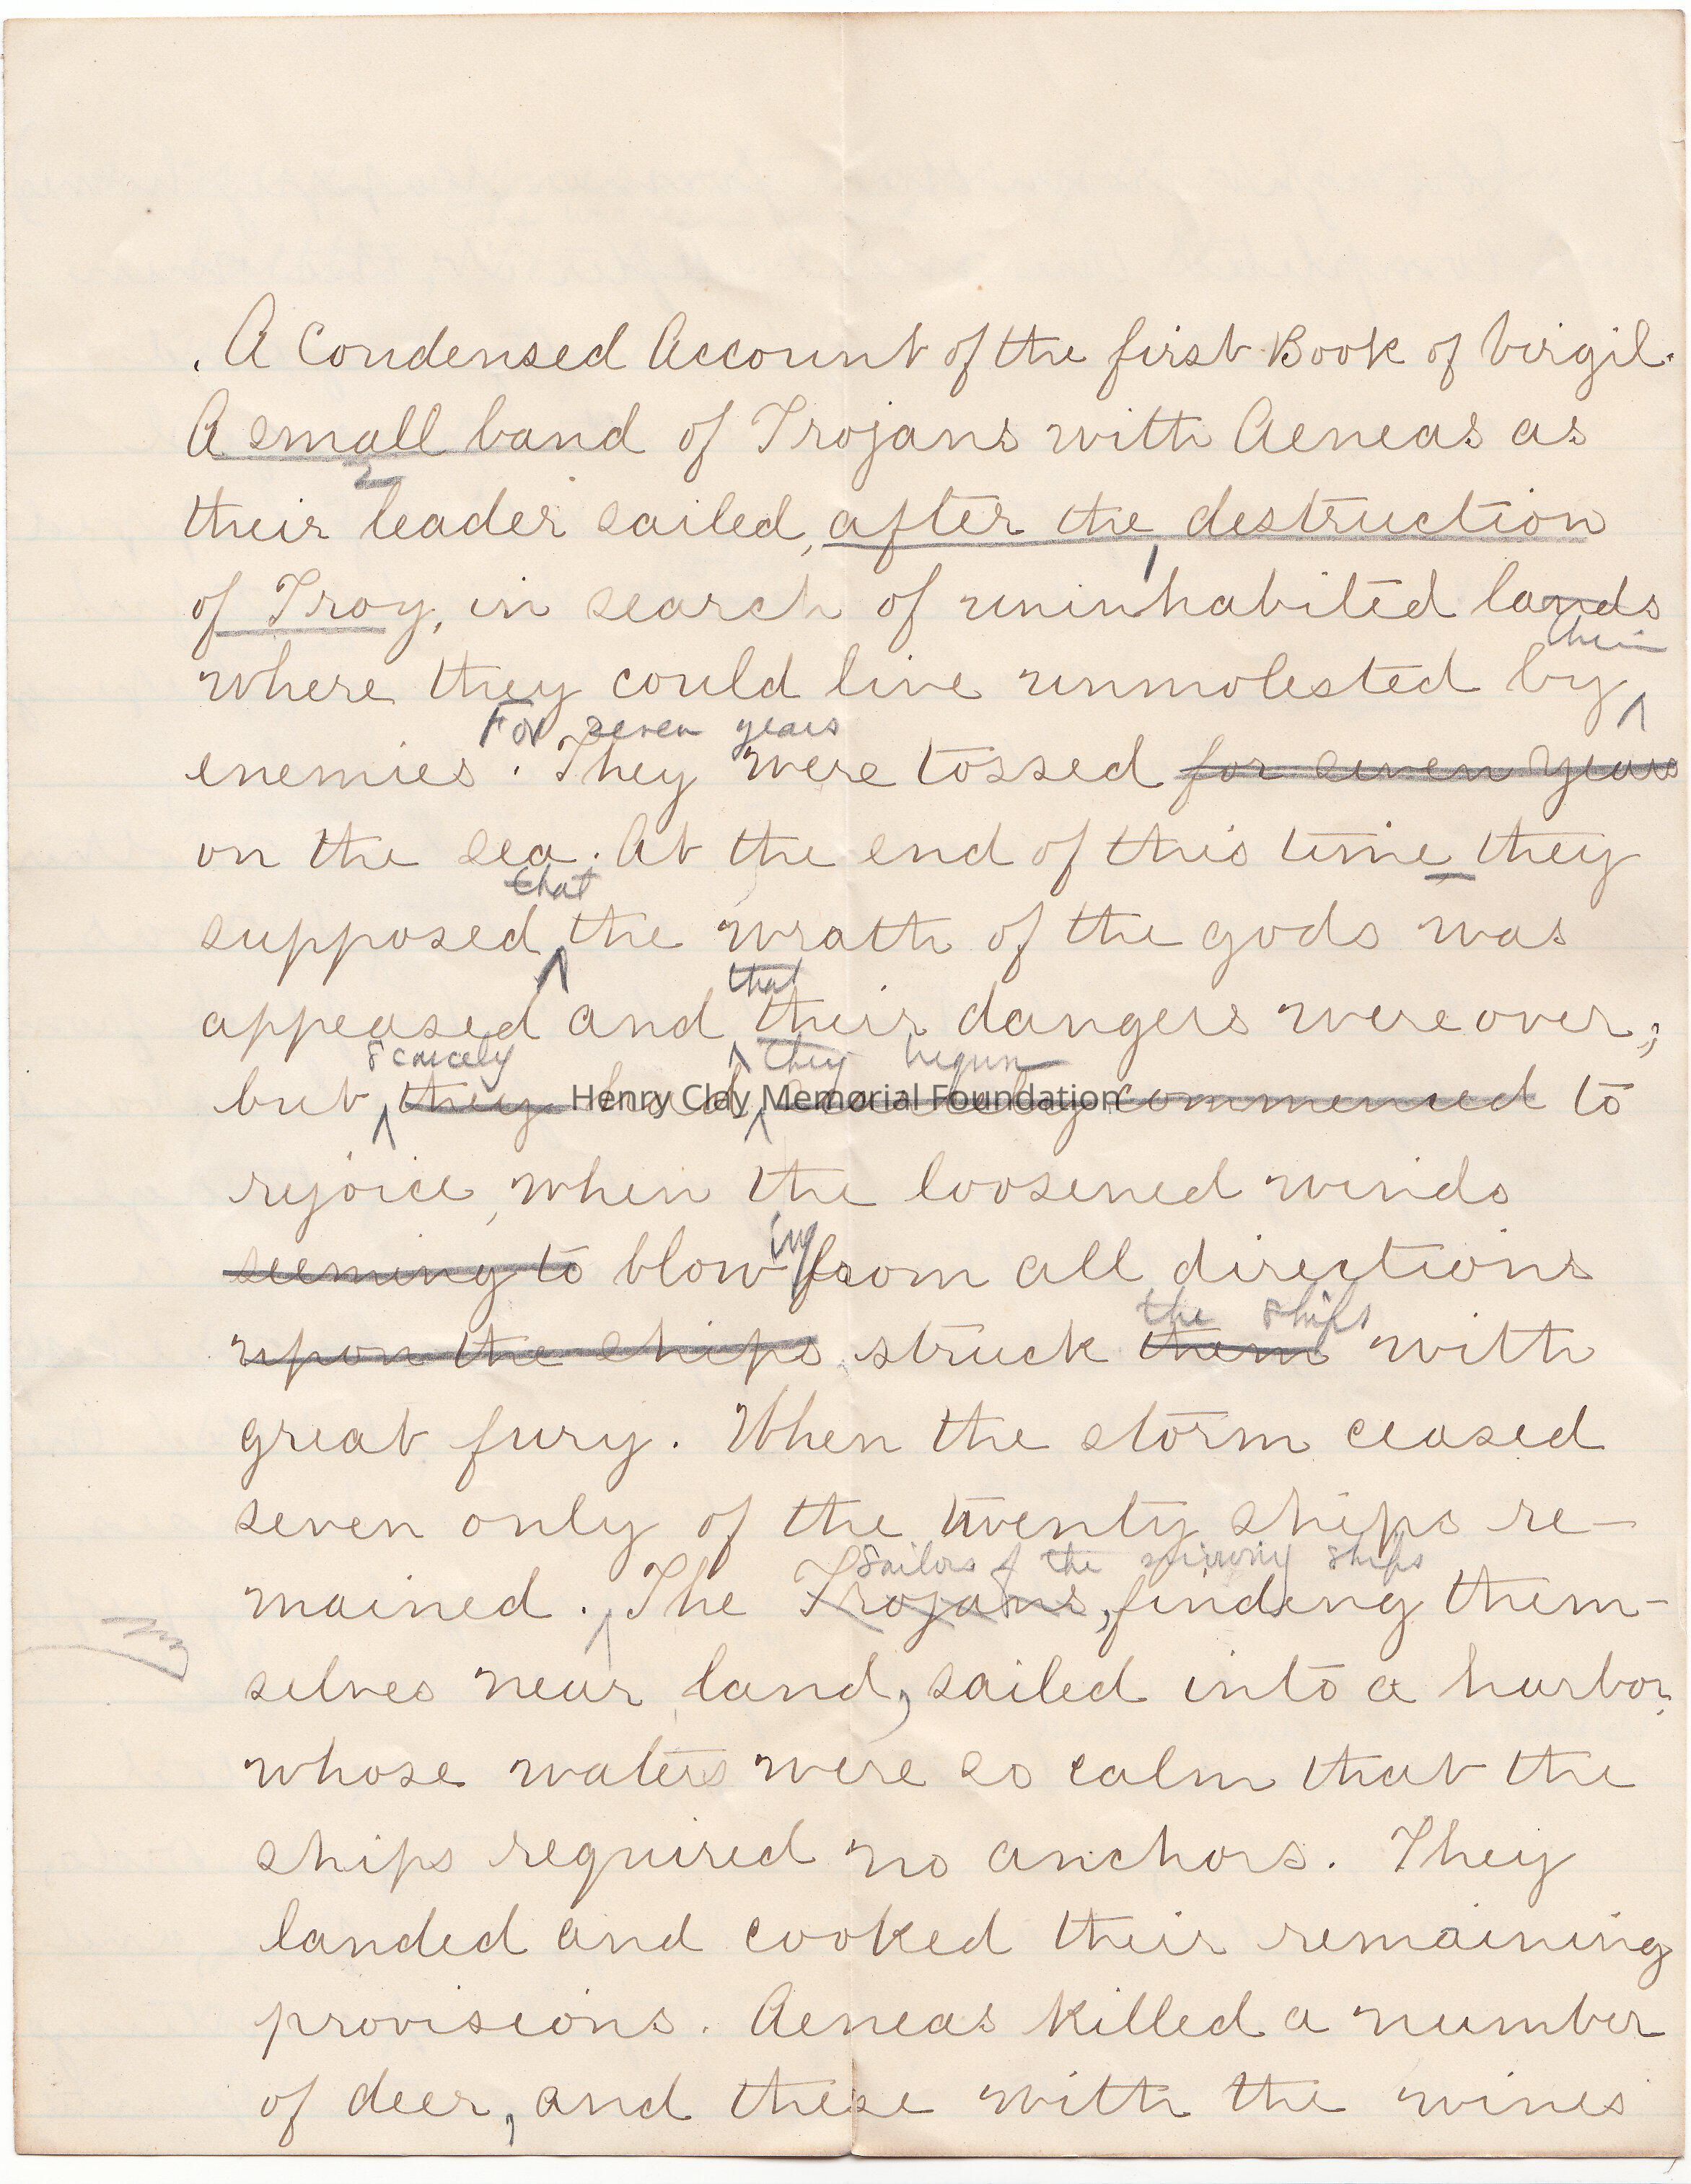 A Condensed Account of the first Book of Virgil.
A small band of Trojans with Aeneas as
their leader sailed, after the destruction
of Troy, in search of uninhabited lands
their
where they could live unmolested by
For seven years
enemies. They were tossed for seven years
on the sea. At the end of this time they
that
supposed the wrath of the gods was
that
appeased and their dangers were over;
scarcely they begun
but they had scarcely commenced to
Henry Clay Memorial Foundation
rejoice, when the loosened winds
ing
seeming to blow from all directions
the ships
upon the ships struck them with
great fury. When the storm ceased
seven only of the twenty ships re-
Sailors of the missing ships
mained. The Trojans, finding them-
selves near land, sailed into a harbor,
whose waters were so calm that the
ships required no anchors. They
landed and cooked their remaining
provisions. Aeneas killed a number
of deer, and these with the wines